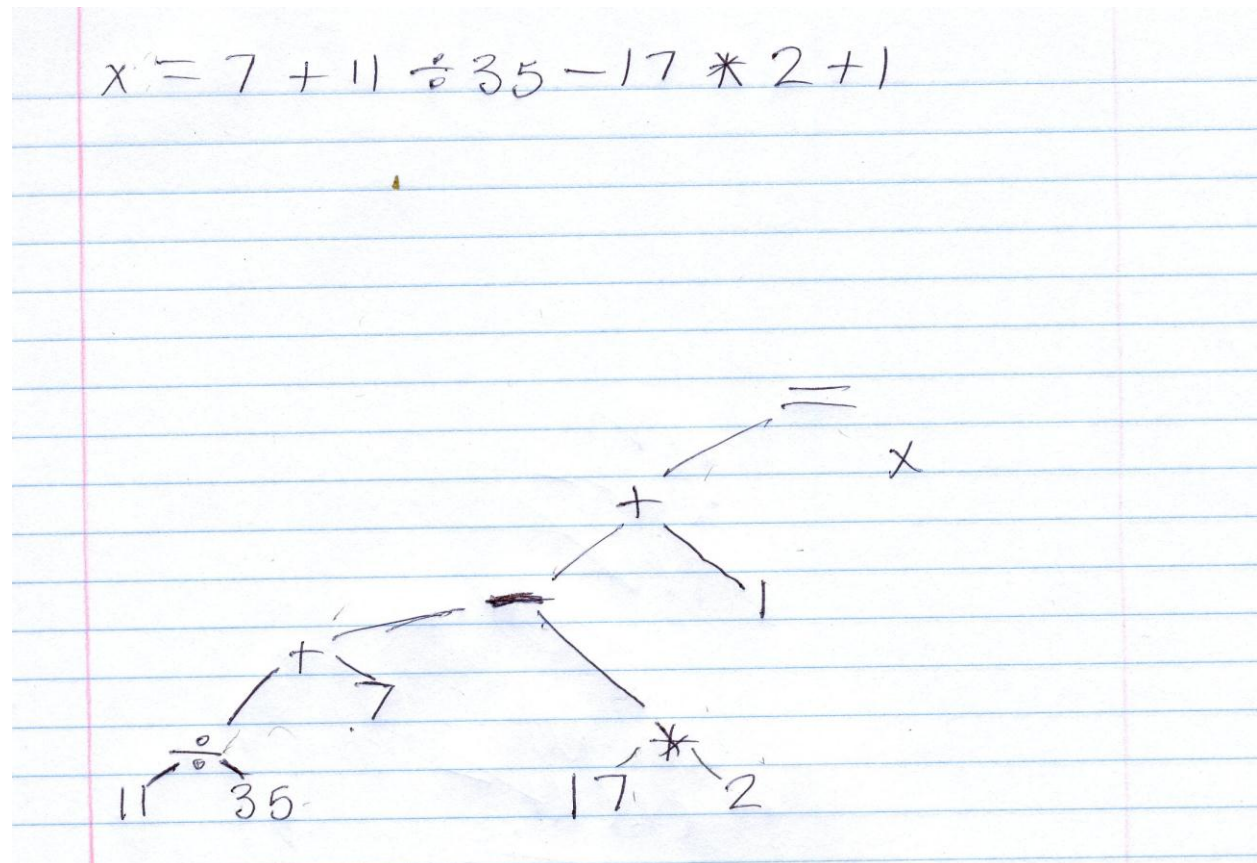 x = 7 + 11 ÷ 35 - 17 * 2 + 1
=
x
+
- 1
+
7
÷ *
11 35 17 2